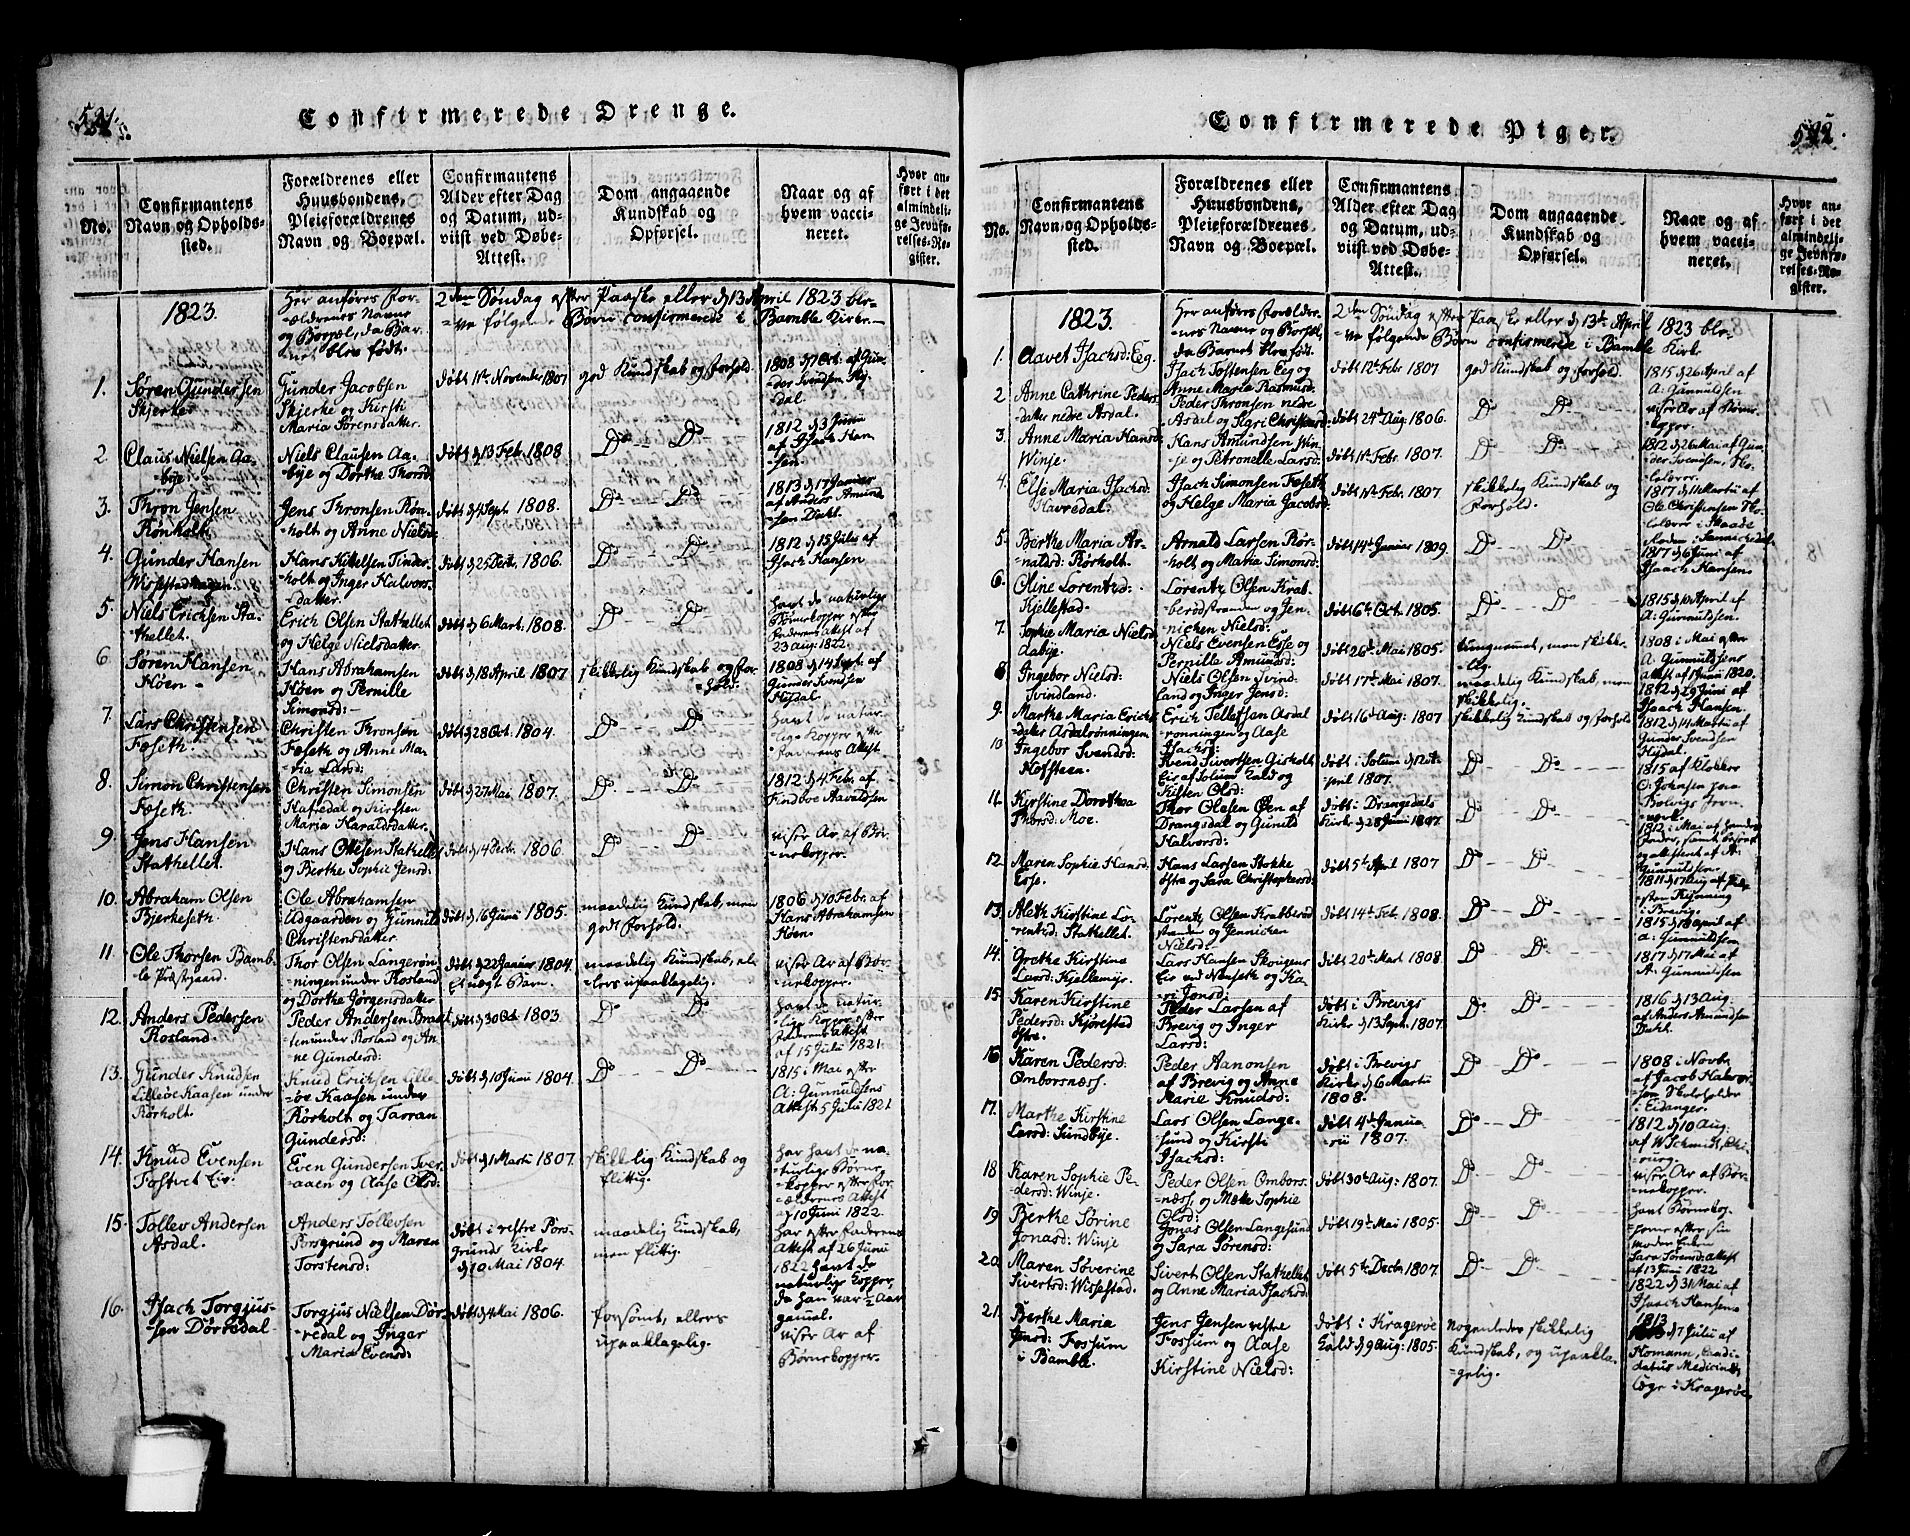 521.
Confirmerede Drenge.
No.
Confirmantens
Navn og Opholds-
sted.
Forældrenes eller
Huusbondens,
Pleieforældrenes
Navn og Boepæl.
Confirmantens
Alder efter Dag
og Datum, ud-
viist ved Døbe-
Attest.
Dom angaaende
Kundskab og
Opførsel.
Naar og af
hvem vacci-
neret.
Hvor an-
ført i det
almindeli-
ge Jevnfø-
relses-Re-
gister.
1823.
Her anføres For-
ældrenes Navne
og Boepæl, da Bar-
net blev født.
2den Søndag efter Paaske eller d 13 April 1823 ble-
-ve følgende Børn confirmerede i Bamble Kirke.
1.
Søren Gundersen
Skjerke
Gunder Jacobsen
Skjerke og Kirsti
Maria Sørensdatter.
døbt 1ste November 1807
god Kundskab og Forhold.
1808 d 7 Oct: af Gun-
der Svendsen Hy-
dal.
2
Claus Nielsen Aa-
bye.
Niels Clausen Aa-
bye og Dorthe Thorsd:
døbt d 13 Feb: 1808
Do - - Do
1812 d 3 Junii
af Isach Han-
sen.
3.
Thron Jensen
Rønholt.
Jens Thronsen Røn-
holt og Anne Nielsd:
døbt d 4 Sept. 1808.
Do - - Do
1813 d 17 Januar
af Anders Amund
sen Dahl.
4.
Gunder Hansen
Wissestadhagen.
Hans Kittelsen Tinder-
holt og Inger Halvors-
datter.
døbt d 25 Dec. 1806.
Do - - Do
1812 d 15 Julii af
Isach Hansen
5.
Niels Erichsen Sta-
thellet.
Erich Olsen Stathellet
og Helge Nielsdatter.
døbt d 6 Mart. 1808.
Do - - Do
havt de naturlige
Børnekopper efter
Faderens Attest af
23 Aug: 1822.
6
Søren Hansen
Høen -
Hans Abrahamsen
Høen og Pernille
Simonsd: -
døbt d 18 April 1807
skikkelig Kundskab og For-
hold:
1808 d 14 Sept. af
Gunder Svendsen
Hydal.
7.
Lars Christensen
Foseth.
Christen Thronsen
Foseth og Anne Ma-
ria Larsd:
døbt d 28 Oct. 1804.
Do - - Do
havt de natur-
lige Kopper efter
Faderens Attest.
8.
Simon Christensen
Foseth.
Christen Simonsen
Hafsdal og Kirsten
Maria Haraldsdatter.
døbt d 27 Mai 1807.
Do - - Do
1812 d 4 Febr. af
Findboe Aavaldsen
9.
Jens Hansen
Stathellet.
Hans Ottesen Stathellet
og Berthe Sophie Jensd:
døbt d 14 Dec. 1806
Do - - Do
viser Ar af Bør-
nekopper.
10.
Abraham Olsen
Bjerkeseth.
Ole Abrahamsen
Udgaarden og Gunnild
Christensdatter
døbt d 16 Junii 1805.
maadelig Kundskab, men
godt Forhold.
1806 d 10 Febr. af
Hans Abrahamsen
Høen.
11.
Ole Thorsen Bamb-
le Præstgaard.
Thor Olsen Langerøn-
ningen under Rosland
og Dorthe Jørgensdatter
døbt d 22 Januar 1804.
Et uægt Barn.
maadelig Kundskab, el-
lers upaaklagelig.
viser Ar af Bør-
nekopper.
12.
Anders Pedersen
Rosland.
Peder Andersen Braat
ten under Rosland og An-
ne Gundersd:
døbt d 30 Oct. 1803.
Do - - Do
havt de Natur-
lige Kopper efter
Faderens Attest
af 15 Julii 1821.
13.
Gunder Knudsen
Lilleøe Kaasen under
Rørholt.
Knud Erichsen Lille
øe Kaasen under
Rørholt og Tarran
Gundersd:
døbt d 10 Junii 1804.
Do - - Do
1815 i Mai efter
A: Gunnuldsens
Attest 5 Julii 1821
14.
Knud Evensen
Fostvet Eie.
Even Gundersen Tver-
aaen og Aase Olsd:
døbt d 1 Martii 1807.
skikkelig Kundskab og
flittig.
har havt de na-
turlige Børne-
kopper efter For-
ældrenes Attest
af 10 Junii 1822.
15.
Tollev Andersen
Asdal.
Anders Tollevsen
Porsgrund og Maren
Torstensd:
døbt i vestre Pors-
grunds Kirke
d 10 Mai 1804.
maadelig Kundskab,
men flittig.
har efter Faderens
Attest af 26 Junii
1822 havt de
naturlige Kopper,
da han var ½ Aar
gamal.
16.
Isach Torgjus-
sen Dørredal
Torgjus Nielsen Dør-
redal og Inger
Maria Evensd:
døbt d 4 Mai 1806.
forsømt, ellers
upaaklagelig.
viser Ar af
Børnekopper.
522.
Confirmerede Piger.
No.
Confirmantens
Navn og Opholds-
sted.
Forældrenes eller
Huusbondens,
Pleieforældrenes
Navn og Boepæl.
Confirmantens
Alder efter Dag
og Datum, ud-
viist ved Døbe-
Attest.
Dom angaaende
Kundskab og
Opførsel.
Naar og af
hvem vacci-
neret.
Hvor an-
ført i det
almindeli-
ge Jevnfø-
relses-Re-
gister.
1823.
Her anføres Forælder-
nes Navne og Boepæl,
da Barnet blev født.
2den Søndag efter Paaske eller d 13de April 1823 ble-
-ve følgende Børn confirmerede i Bamble Kirke
1.
Aavet Isachsd: Eeg.
Isach Tossensen Eeg og
Anne Maria Rasmusd:
døbt 12te Febr 1807
god Kundskab og Forhold.
1815 d 26 April af
A: Gunnuldsen
2
Anne Cathrine Peders-
datter nedre Asdal.
Peder Thronsen nedre
Asdal og Sigri Christensd:
døbt 24de Aug: 1806.
Do - Do -
viser Ar af Børne-
kopper.
3.
Anne Maria Hansd:
Winje.
Hans Amundsen Win-
je og Petronelle Larsd:
døbt 1ste Febr. 1807.
Do - Do -
1812 d 26 Mai af Gun-
der Svendsen, Sko-
lelærer.
4.
Else Maria Isachsd:
Havredal.
Isach Simonsen Foseth
og Helge Maria Jacobsd:
døbt 1ste Febr. 1807
skikkelig Kundskab og
Forhold.
1817 d 11 Martii af
Ole Christensen Sko-
lelærer i Skaade
Roden i Sannickedal
5.
Berthe Maria Ar-
naldsd: Rørholt.
Arnald Larsen Rør-
holt og Maria Simonsd:
døbt 14de Januar 1809.
Do - Do -
1817 d 6 Junii af
Isaach Hansen
6.
Oline Lorentzd:
Kjellestad.
Lorentz Olsen Krab-
berødstranden og Jen-
nichen Nielsd:
døbt 6te Oct. 1805.
Do - Do -
1815 d 10 April af
A: Gunnuldsen.
7.
Sophie Maria Nielsd:
Aabye.
Niels Evensen Esse og
Pernille Amundsd:
døbt 26de Mai 1805.
tungnemt, men skikke-
lig.
1808 i Mai efter
A. Gunnuldsens
Attest af 1 Junii 1820.
8
Ingebor Nielsd:
Svindland.
Niels Olsen Svind
land og Inger Jensd:
døbt 17de Mai 1807.
maadelig Kundskab, men
skikkelig.
1812 d 29 Junii af
Isach Hansen.
9.
Marthe Maria Erichs
datter Asdalrønningen
Erich Tellefsen Asdal
rønningen og Aase
Isachsd:
døbt 16de Aug: 1807
skikkelig Kundskab og Forhold
1812 d 14 Martii af
Gunder Svendsen
Hydal.
10
Ingebor Svendsd:
Hofsteen.
Svend Sivertsen Gisholt
Eie af Solum Gield og
Kisten Olsd:
døbt i Solum d 12 A-
pril 1807.
Do - Do -
1815 af Klokker
O: Johnsen paa
Bolvigs Jern-
værk.
11.
Kirstine Dorothea
Thorsd: Moe.
Thor Olasen Øen af
Drangedal og Gunild
Halvorsd:
døbt i Drangedals
Kirke d 28 Junii 1807.
Do - Do -
12
Maren Sophie Hansd:
Esse.
Hans Larsen Stokke
østre og Sara Christophersd:
døbt 5te April 1807
Do - Do -
13.
Aleth Kirstine Lo-
rentzd: Stathellet.
Lorentz Olsen Krabberød
stranden og Jennichen
Nielsd:
døbt 14de Feb. 1808.
Do - Do -
1815 d 18 April af
A: Gunnuldsen
14.
Grethe Kirstine
Larsd: Kjellemyr.
Lars Hansen Skougens
Eie ved Nenseth og Ka-
ri Jonsd:
døbt 20de Mart. 1808.
Do - Do -
1817 d 17 Mai af
A: Gunnuldsen
15.
Karen Kirstine
Pedersd: Kjørestad
østre.
Peder Larsen af
Brevig og Inger
Larsd:
døbt i Brevigs
Kirke d 13 Sept. 1807.
Do - Do -
1816 d 13 Aug.
af Anders Amundsen
Dahl.
16
Karen Pedersd:
Omborsnæss.
Peder Aanonsen
af Brevig og Anne
Marie Knudsd:
døbt i Brevigs
Kirke d 6 Martii
1808.
Do - Do -
1808 i Novbr.
af Jacob Halvor-
sen Skoleholder
i Eidanger.
17.
Marthe Kirstine
Larsd: Sundbye.
Lars Olsen Lange-
sund og Kirsti
Isachsd:
døbt 4de Janua-
rii 1807.
Do - Do -
1812 d 10 Aug.
af W Schmidt, Chi-
rurg.
18
Karen Sophie Pe-
dersd: Winje.
Peder Olsen Ombors-
næss og Mette Sophie
Olsd:
døbt 30de Aug: 1807.
Do - Do -
viser Ar af Bør-
nekopper.
19
Berthe Sørine
Jonasd: Winje
Jonas Olsen Langesund
og Sara Sørensd:
døbt 19de Mai 1805.
Do - Do -
havt Børnekop-
perne efter sin
Moder Enken
Sara Sørensd: Attest
af 13 Junii 1822
20.
Maren Severine
Sivertsd: Wissestad.
Sivert Olsen Stathellet
og Anne Maria Isachsd:
døbt 5te Decbr 1807.
Do - Do -
1822 d 31 Mai af
Isach Hansen
21.
Berthe Maria
Jensd: Fossum
i Bamble.
Jens Jensen vestre
Fossum og Aase
Kirstine Nielsd:
døbt i Kragerøe
Gield d 9 Aug: 1805.
Nogenledes skikkelig
Kundskab, og upaakla-
gelig.
1813
d 7 Julii af
Homann, Candi-
datus Medicinæ
Læge i Kragerøe